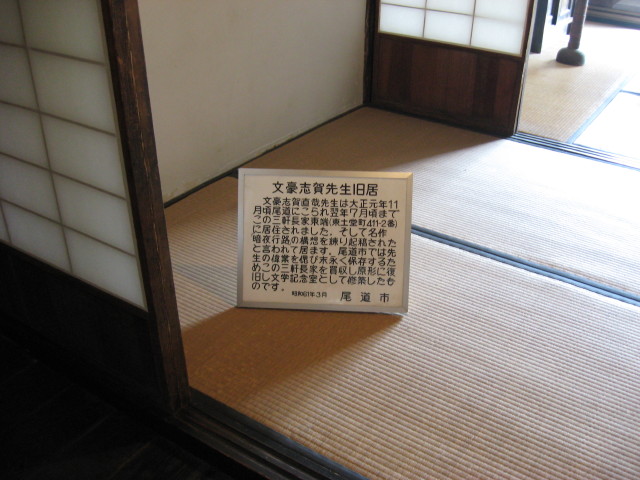 文豪志賀先生旧居
文豪志賀直哉先生は大正元年11
月頃尾道にこられ翌年7月頃まで
この三軒長家東端(東土堂町411-2番)
に居住されました。そして名作
暗夜行路の構想を練り起稿された
と言われて居ます。尾道市では先
生の偉業を偲び末永く保存するた
めこの三軒長家を買収し原形に復
旧し文学記念室として修築したも
のです。 昭和61年3月 尾道市